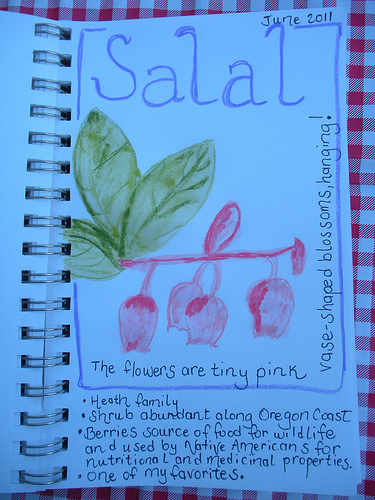 June 2011
Salal
vase-shaped blossoms, hanging!
The flowers are tiny pink
• Heath family
• Shrub abundant along Oregon Coast
• Berries source of food for wildlife
and used by Native Americans for
nutritional and medicinal properties.
• One of my favorites.